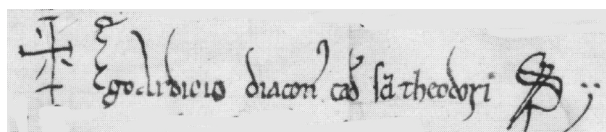 ✝ Ego ardicio diacon̄ card̄ sc̄i theodori SS